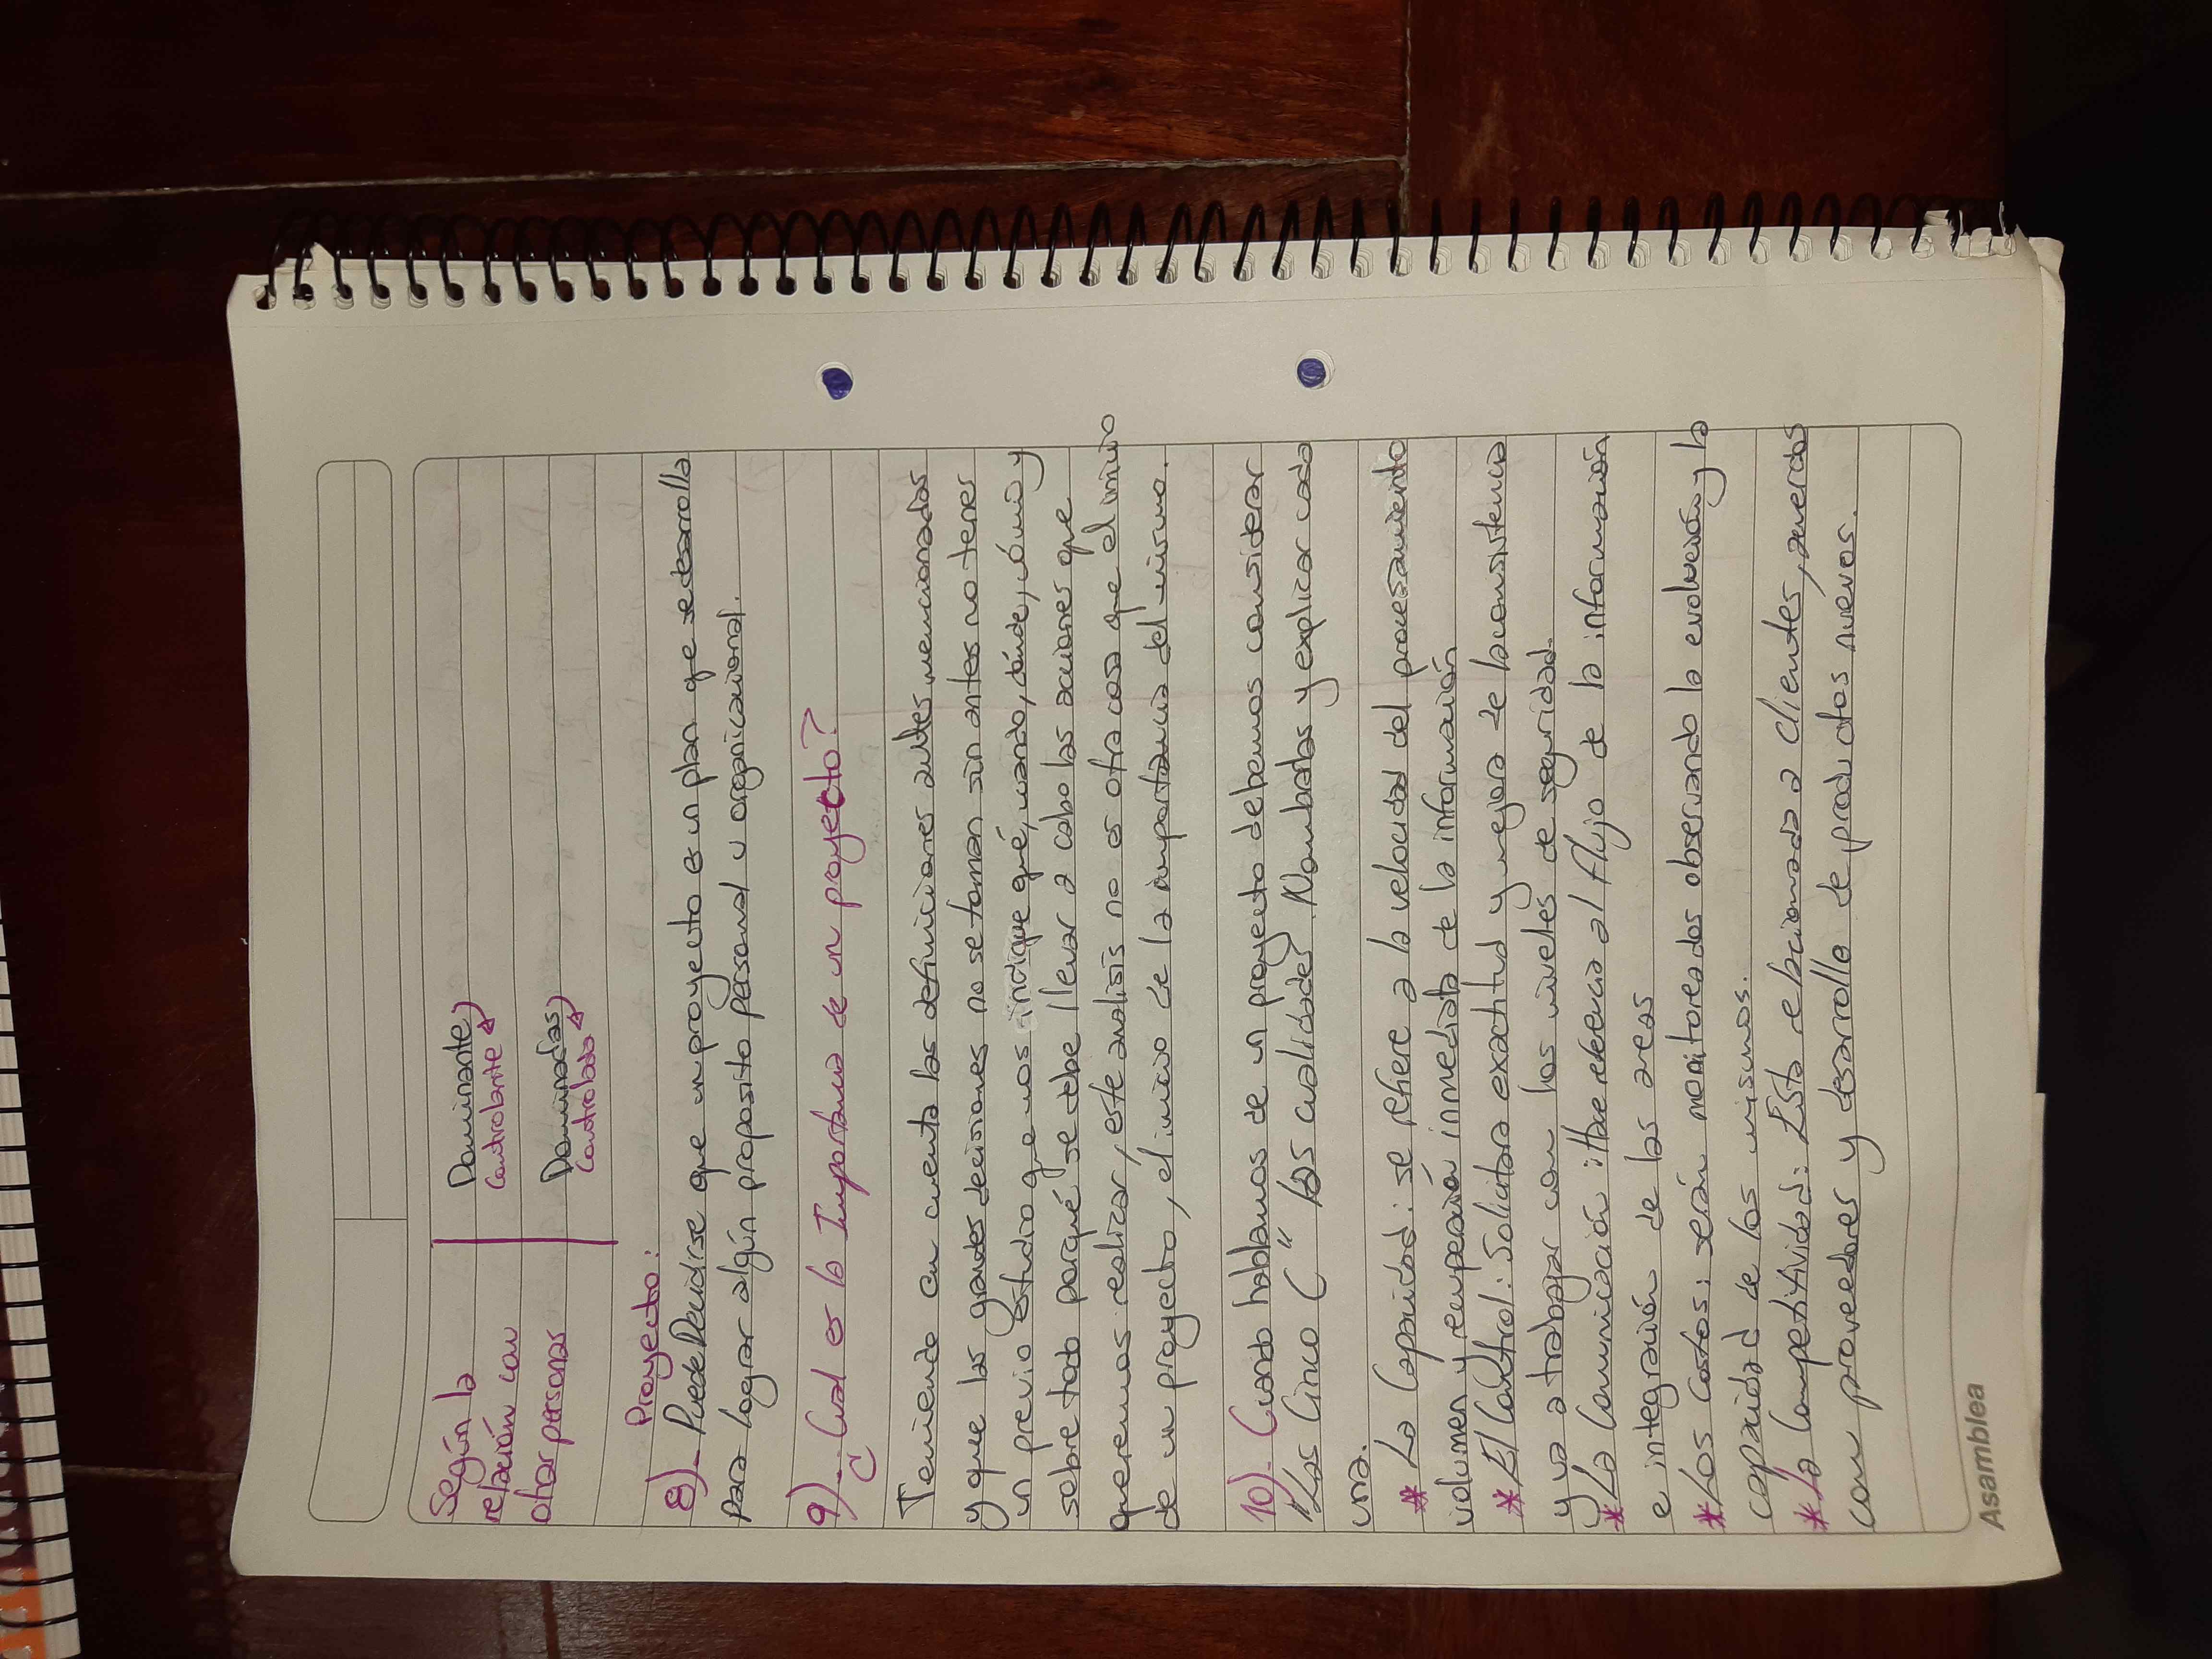 Según la
relación con
otras personas
Dominante
Controlante
Dominadas
Controlada
Proyecto:
8)- Puede Decidirse que un proyecto es un plan que se desarrolla
para lograr algún proposito personal u organizacional.
9)- Cual es la Importancia de un proyecto?
Teniendo en cuenta las definiciones antes mencionadas
y que las grandes decisiones no se toman sin antes no tener
un previo estudio que nos indique qué, cuando, dónde, cómo y
sobre todo porqué se debe llevar a cabo las acciones que
queremos realizar, este analisis no es otra cosa que el inicio
de un proyecto, el inicio de la importancia del mismo.
10)- Cuando hablamos de un proyecto debemos considerar
"Las Cinco C" las cualidades? Nombralas y explicar cada
una.
* La Capacidad: se refiere a la velocidad del procesamiento
volumen y recuperación inmediata de la información
* El Control: Solicitara exactitud y mejora de la consistencia
y va a trabajar con los niveles de seguridad.
* La Comunicación: Hace referencia al flujo de la información
e integración de las areas
* Los Costos: serán monitoreados observando la evolución y la
capacidad de los mismos.
* La Competitividad: Esta relacionada a clientes, acuerdos
con proveedores y desarrollo de productos nuevos.
Asamblea